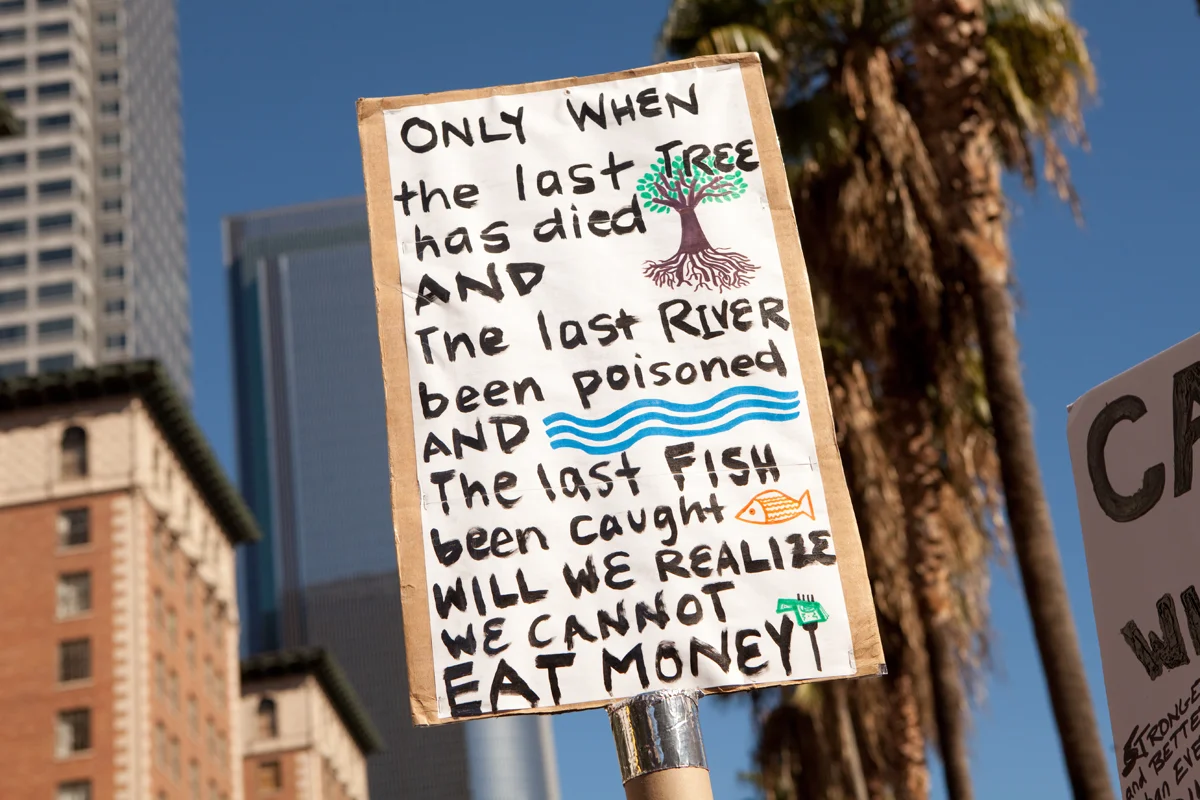 ONLY WHEN
the last TREE
has died
AND
The last RIVER
been poisoned
AND
The last FISH
been caught
WILL WE REALIZE
WE CANNOT
EAT MONEY
STRONGE
and BETTE